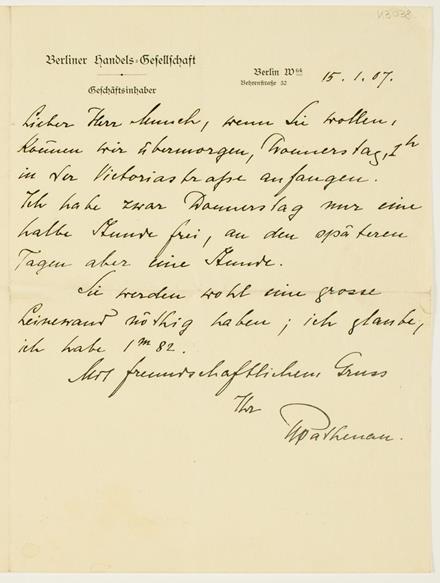 K3038.
Berliner Handels-Gesellschaft
Geschäftsinhaber
Berlin W64
Behrenstraße 32
15.1.07.
Lieber Herr Munch, wenn Sie wollen,
können wir übermorgen, Donnerstag, 1h
in der Victoriastrasse anfangen.
Ich habe zwar Donnerstag nur eine
halbe Stunde frei, an den späteren
Tagen aber eine Stunde.
Sie werden wohl eine grosse
Leinewand nöthig haben; ich glaube,
ich habe 1m82.
Mit freundschaftlichem Gruss
Ihr
WRathenau.